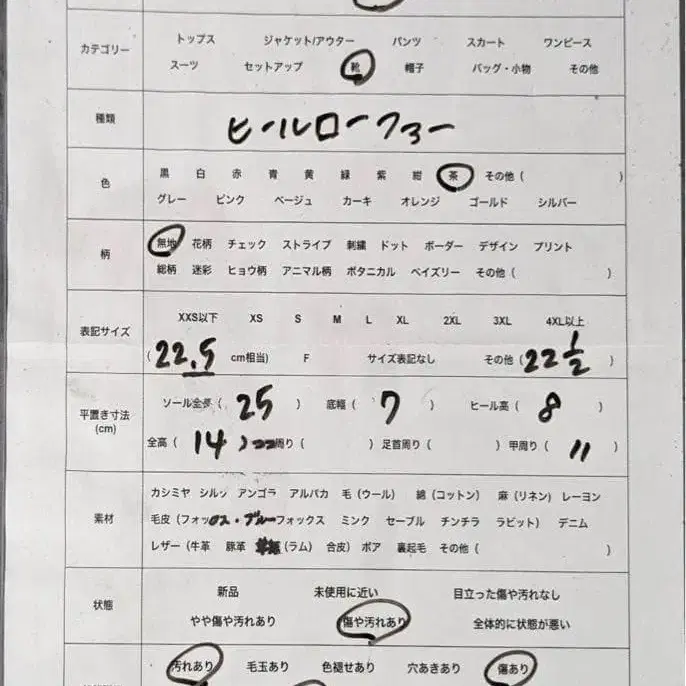 カテゴリー
トップス ジャケット/アウター パンツ スカート ワンピース
スーツ セットアップ 靴 帽子 バッグ・小物 その他
種類
ヒールローファー
色
黒 白 赤 青 黄 緑 紫 紺 茶 その他( )
グレー ピンク ベージュ カーキ オレンジ ゴールド シルバー
柄
無地 花柄 チェック ストライプ 刺繍 ドット ボーダー デザイン プリント
総柄 迷彩 ヒョウ柄 アニマル柄 ボタニカル ペイズリー その他( )
表記サイズ
XXS以下 XS S M L XL 2XL 3XL 4XL以上
(22.5 cm相当) F サイズ表記なし その他(22 1/2)
平置き寸法
(cm)
ソール全長(25) 底幅(7) ヒール高(8)
全高(14) 周り( ) 足首周り( ) 甲周り(11)
素材
カシミヤ シルク アンゴラ アルパカ 毛(ウール) 綿(コットン) 麻(リネン) レーヨン
毛皮(フォックス・ブルーフォックス ミンク セーブル チンチラ ラビット) デニム
レザー(牛革 豚革 (ラム) 合皮) ボア 裏起毛 その他( )
状態
新品 未使用に近い 目立った傷や汚れなし
やや傷や汚れあり 傷や汚れあり 全体的に状態が悪い
汚れあり 毛玉あり 色褪せあり 穴あきあり 傷あり